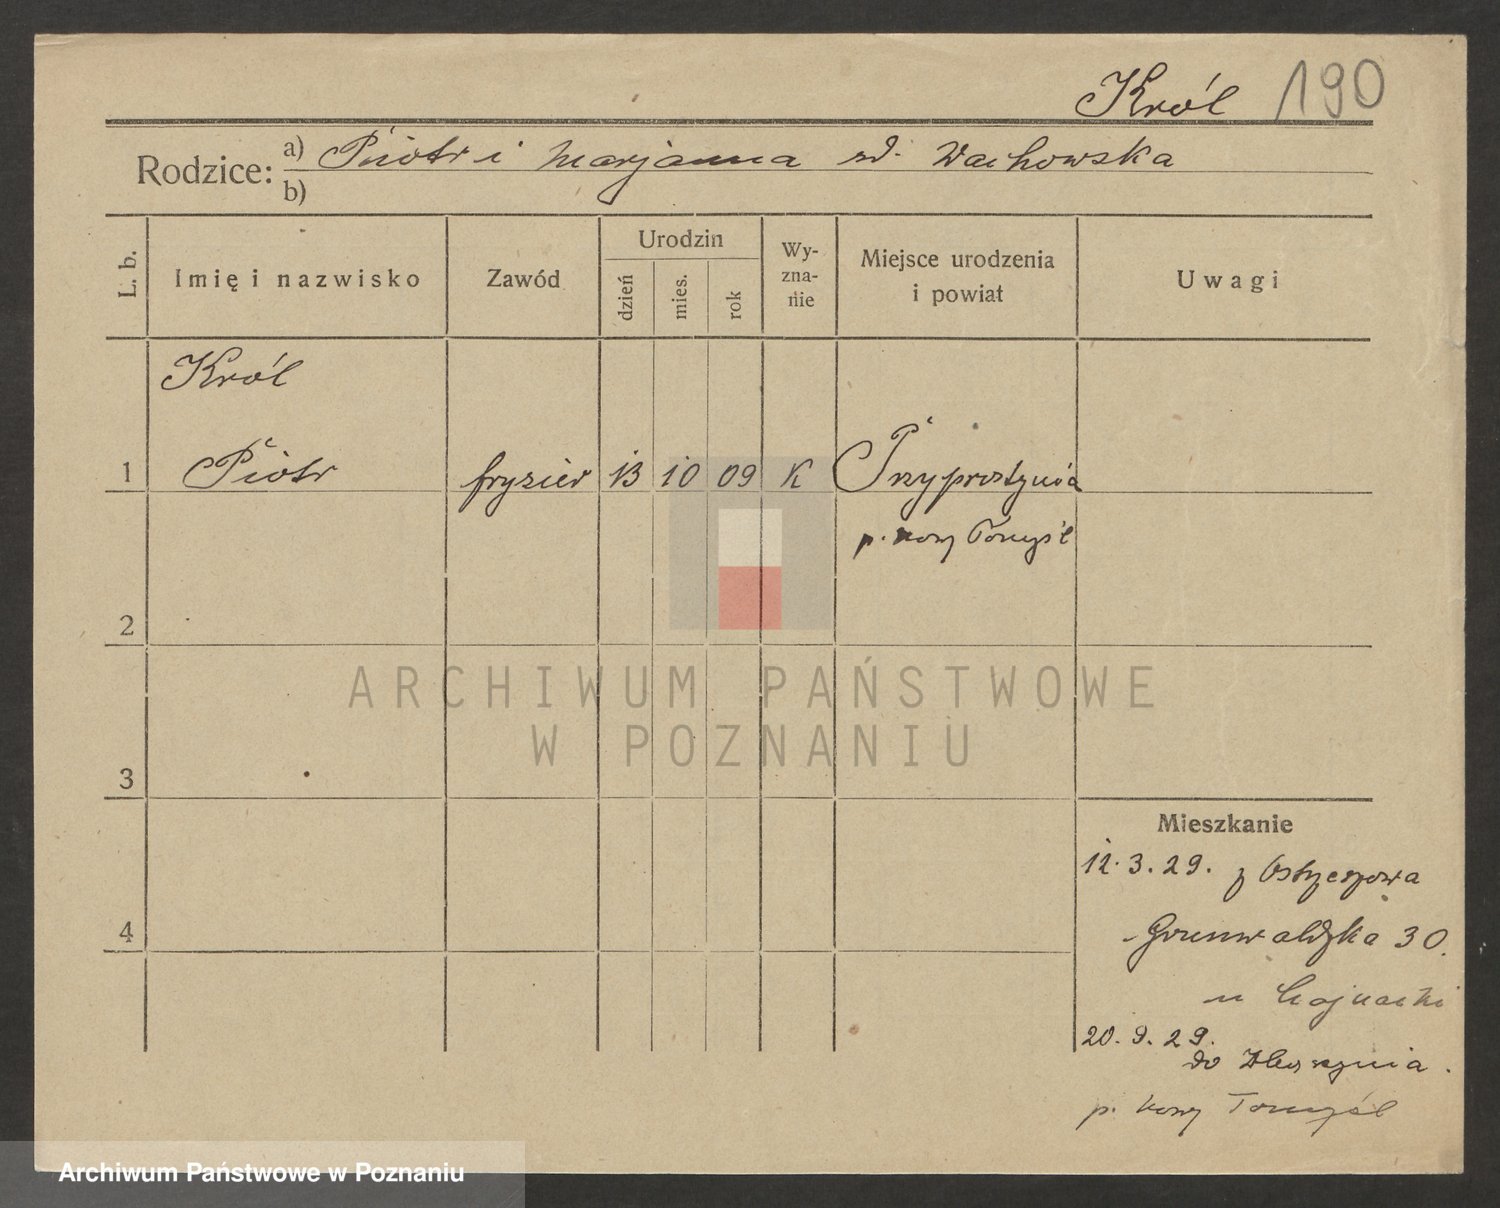 Król 190
Rodzice: a) Piotr i Marjanna zd. Wachowska
b)
L. b.
Imię i nazwisko
Zawód
Urodzin
dzień
mies.
rok
Wy-
zna-
nie
Miejsce urodzenia
i powiat
Uwagi
Król
1 Piotr fryzier 13 10 09 K Przyprostynia
p. Nowy Tomyśl
2
ARCHIWUM PAŃSTWOWE
W POZNANIU
3
Mieszkanie
12.3.29. z Ostrzeszowa
4
Grunwaldzka 30.
u
20.9.29.
do Zbąszynia.
p. Nowy Tomyśl
Archiwum Państwowe w Poznaniu